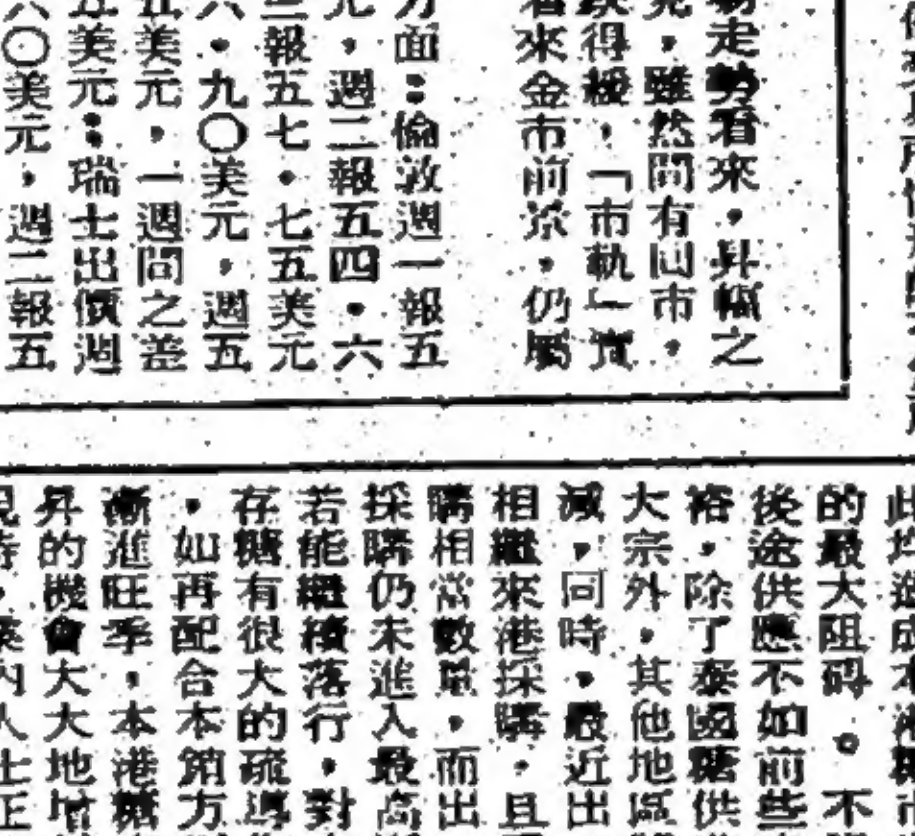 走勢看來，昇幅之
，雖然間有回市，
得緩，「市軌」實
看來金市前景，仍屬
方面：倫敦週一報五
元，週二報五四．六
三報五七．七五美元
六．九〇美元，週五
五美元，一週間之差
五美元：瑞士出價週
六〇美元，週二報五
的最大阻碍。不
後途供應不如前些
裕，除了泰國糖供
大宗外，其他地區
減，同時，最近出
相繼來港採購，且
購相當數量，而出
採購仍未進入最高
若能繼續落行，對
存糖有很大的疏導
，如再配合本銷方
漸進旺季，本港糖
昇的機會大大地增